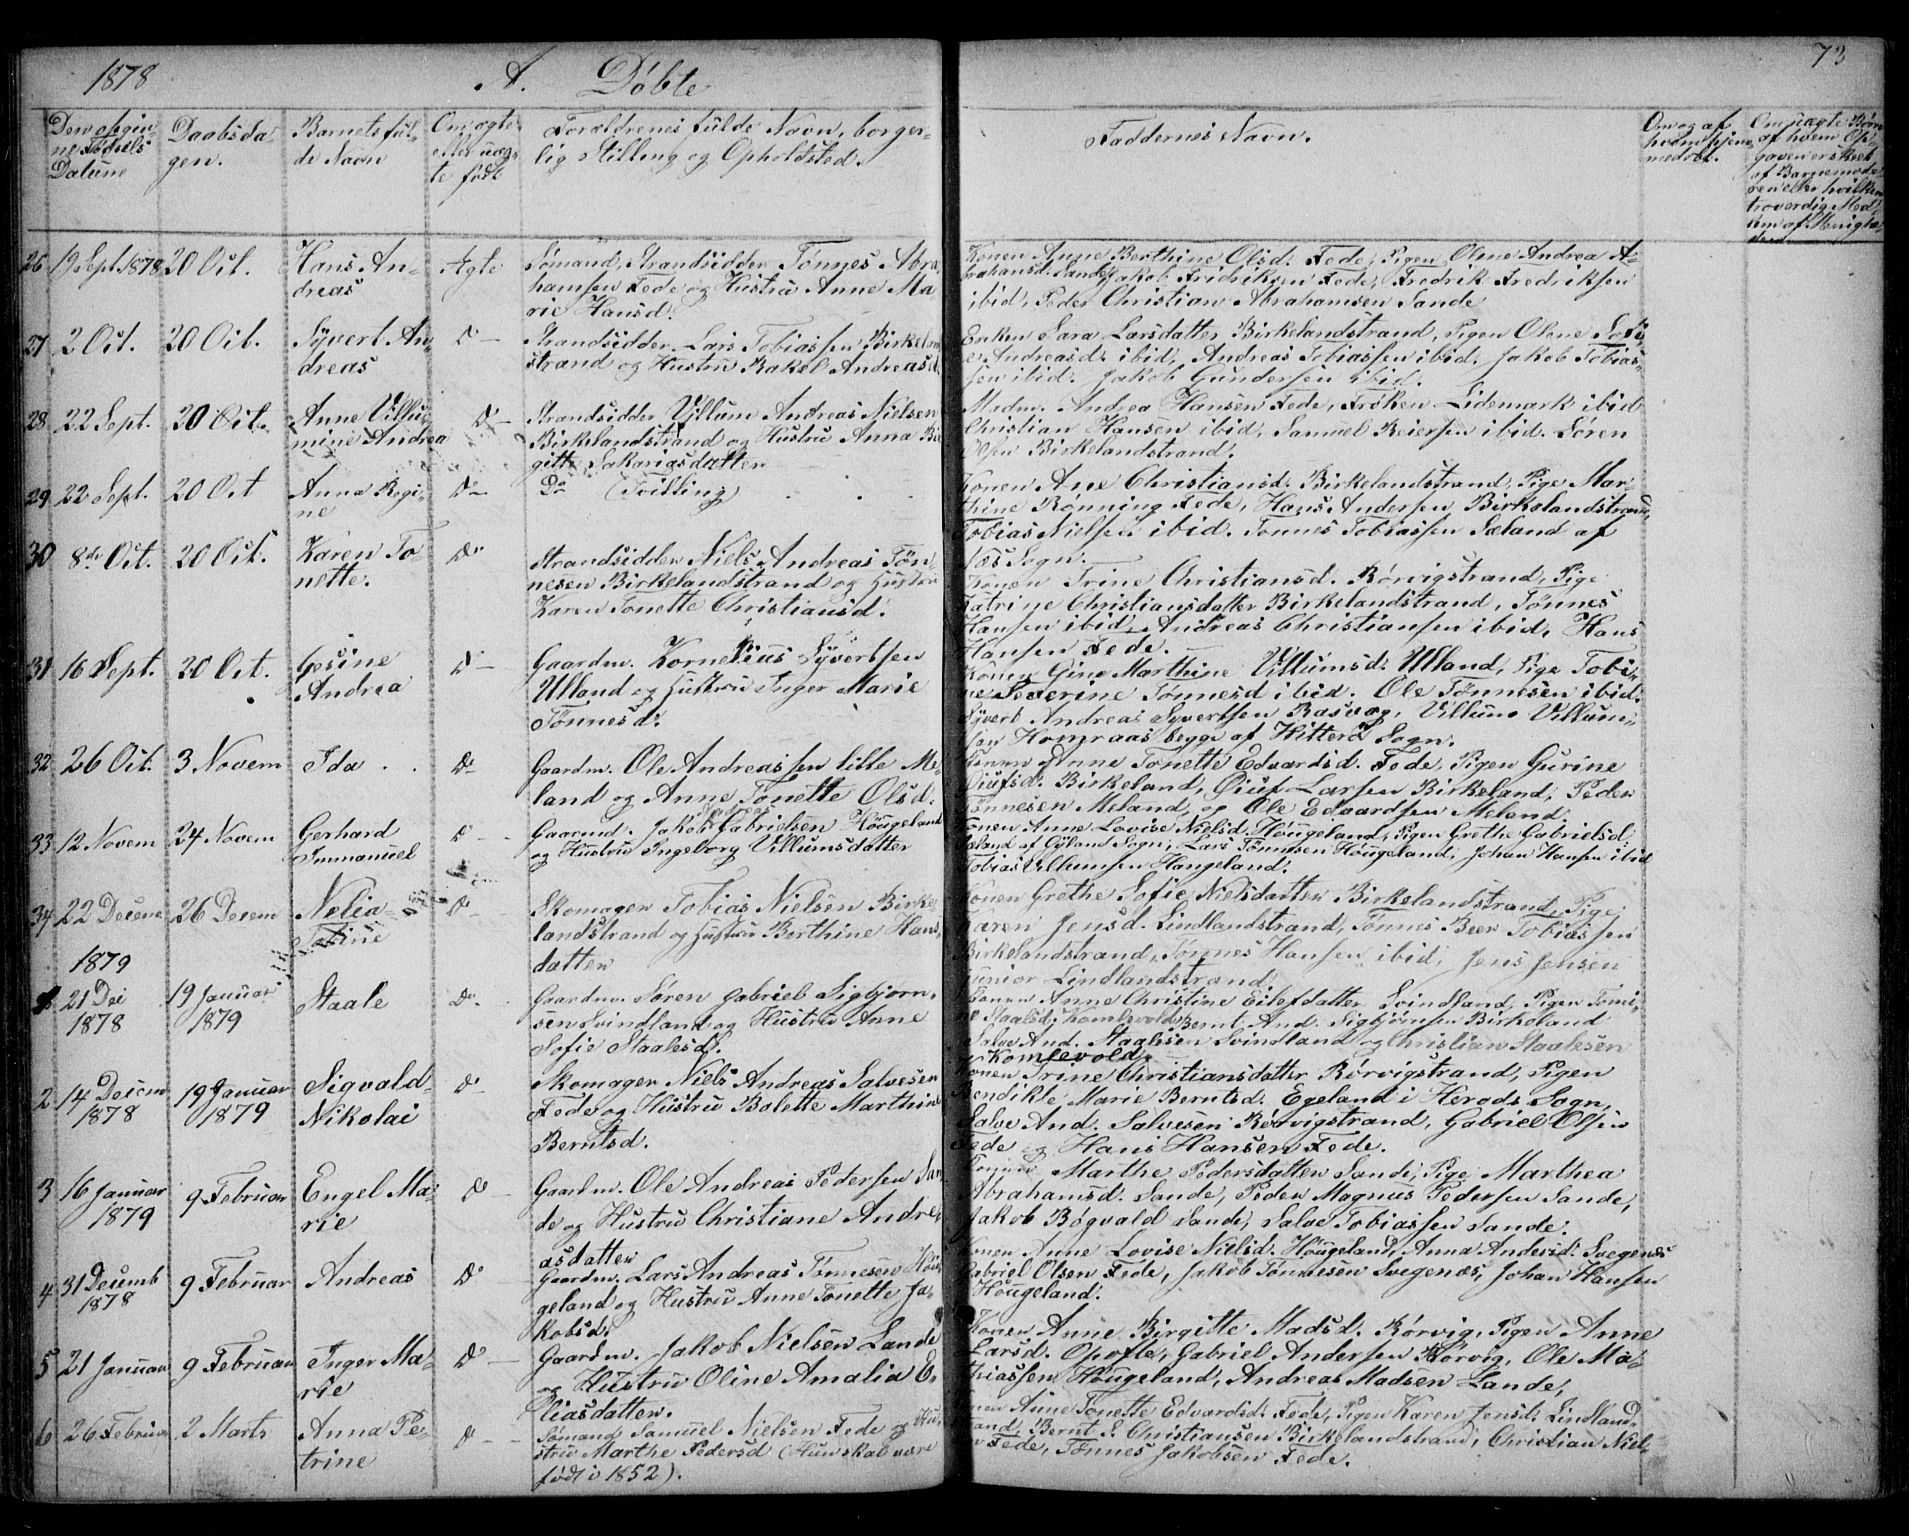 1878
A. Døbte
73
Den opgiv-
ne Fødsels
Datum
Daabsda-
gen.
Barnets ful-
de Navn
Om ægte
eller uæg-
te født
Forældrenes fulde Navn, borger-
lig Stilling og Opholdsted.
Faddernes Navn.
Om og af
hvem hjem-
medøbt.
Om uægte Børn
af hvem Op-
gaven er skeet
af Barnemode-
ren eller hvilken
troværdig Med-
lem af Menighe-
26
19 Sept. 1878
20 Oct.
Hans An-
dreas
Ægte
Sømand, Strandsidder Tønnes Abra-
hamsen Fede og Hustru Anne Ma
rie Hansd.
Konen Anne Berthine Olsd. Fede, Pigen Olene Andrea A-
brahamsd. Sande, Jakob Fridriksen Fede, Fredrik Fredriksen
ibid, Peder Christian Abrahamsen Sande
27
2 Oct.
20 Oct.
Syvert An
dreas
Do
Strandsidder Lars Tobiassen Birkeland
strand og Hustru Rakel Andreasd.
Enken Sara Larsdatter Birkelandstrand, Pigen Olene Sofi
e Andreasd. ibid, Andreas Tobiassen ibid. Jakob Tobias-
sen ibid. Jakob Gundersen ibid.
28
22 Sept.
20 Oct.
Anne Villu
mine Andrea
Do
Strandsidder Villum Andreas Nielsen
Birkelandstrand og Hustru Anna Bir
gitte Sakariasdatter
Madm. Andrea Hansen Fede, Frøken Lidemark ibid
Christian Hansen ibid, Samuel Reiersen ibid. Søren
Olsen Birkelandstrand.
29
22 Sept.
20 Oct
Anna Regi-
ne
Do
Do (Tvilling)
Konen Ane Christiansd. Birkelandstrand, Pige Mar-
thine Rønning Fede, Hans Andersen Birkelandstrand,
Tobias Nielsen ibid. Tønnes Tobiassen Sæland af
Næs Sogn.
30
8de Oct.
20 Oct.
Karen To
nette.
Do
Strandsidder Niels Andreas Tøn-
nesen Birkelandstrand og Hustru
Karen Tonette Christiansd.
Konen Trine Christiansd. Rørvigstrand, Pige
Katrine Christiansdatter Birkelandstrand, Tønnes
Hansen ibid, Andreas Christiansen ibid, Hans
Hansen Fede.
31
16 Sept.
20 Oct.
Gesine
Andrea
Do
Gaardm. Kornelius Syvertsen
Ulland og Hustru Inger Marie
Tønnesd.
Konen Gine Marthine Villumsd. Ulland, Pige Tobi-
ne Severine Tønnesd ibid. Ole Tønnesen ibid.
Syvert Andreas Syvertsen Rasvog, Villum Villum-
sen Homraas begge af Hitterø Sogn.
32
26 Oct.
3 Novem
Ida
Do
Gaardm. Ole Andreassen lille Me-
land og Anne Tonette Olsd.
Konen Anne Tonette Edvardsd. Fede, Pigen Gurine
Øiufsd. Birkeland, Øiuf Larsen Birkeland, Peder
Tønnesen Meland, og Ole Edvardsen Meland.
33
12 Novem
24 Novem
Gerhard
Immanuel
Do
Gaardmd. Jakob Gabrielsen Høugeland
og Hustru Ingeborg Villumsdatter
Konen Anne Lovise Nielsd. Høugeland, Pigen Grethe Gabrielsd.
Sæland af Gyland Sogn, Lars Tønnesen Høugeland, Johan Hansen ibid
Tobias Villumsen Haugeland.
34
22 Decem
26 Decem
Nelia
Tobine
Do
Skomager Tobias Nielsen Birke-
landstrand og Hustru Berthine Hans
datter
Konen Grethe Sofie Nielsdatter Birkelandstrand, Pige
Karen Jensd. Lindlandstrand, Tønnes Beer Tobiassen
Birkelandstrand, Tønnes Hansen ibid, Jens Jensen
junior Lindlandstrand
1879
1
21 Dec
1878
19 Januar
1879
Staale
Do
Gaardm. Søren Gabriel Sigbjørn-
sen Svindland og Hustru Anne
Sofie Staalesd.
Konen Anne Christine Eilefdatter Svindland, Pigen Tomi-
ne Staalsd. Komlevold, Bernt And. Sigbjørnsen Birkeland
Salve And. Staalesen Svindland og Christian Staalesen
Komlevold.
2
14 Decem
1878
19 Januar
1879
Sigvald
Nikolai
Do
Skomager Niels Andreas Salvesen
Fede og Hustru Bolette Marthine
Berntsd.
Konen Trine Christiansdatter Rørvigstrand, Pigen
Bendikte Marie Berntsd. Egeland i Herads Sogn,
Salve And. Salvesen Rørvigstrand, Gabriel Olsen
Fede og Hans Hansen Fede.
3
16 Januar
1879
9 Februar
Engel Ma-
rie
Do
Gaardm. Ole Andreas Pedersen San
de og Hustru Christiane Andre-
asdatter
Konen Marthe Pedersdatter Sande, Pige Marthea
Abrahamsd. Sande, Peder Magnus Pedersen Sande,
Jakob Bøgvald Sande, Salve Tobiassen Sande.
4
31 Decemb
1878
9 Februar
Andreas
Do
Gaardm. Lars Andreas Tønnesen Høu-
geland og Hustru Anne Tonette Ja-
kobsd.
Konen Anne Lovise Nielsd. Høugeland, Anna Andersd. Svegenæs
Gabriel Olsen Fede, Jakob Tønnesen Svegenæs, Johan Hansen
Høugeland.
5
21 Januar
9 Februar
Inger Ma-
rie
Do
Gaardm. Jakob Nielsen Lande
og Hustru Oline Amalia E-
liasdatter.
Konen Anne Birgitte Madsd. Rørvig, Pigen Anne
Larsd. Opofte, Gabriel Andersen Rørvig, Ole Ma-
thiassen Høugeland, Andreas Madsen Lande,
6
26 Februar
2 Marts
Anna Pe-
trine
Do
Sømand Samuel Nielsen Fede og Hu-
stru Marthe Pedersd (Hun skal være
født i 1852).
Konen Anne Tonette Edvardsd. Fede, Pigen Karen Jensd. Lindland-
strand, Bernt S. Christiansen Birkelandstrand, Christian Niel-
sen Fede, Tønnes Jakobsen Fede.